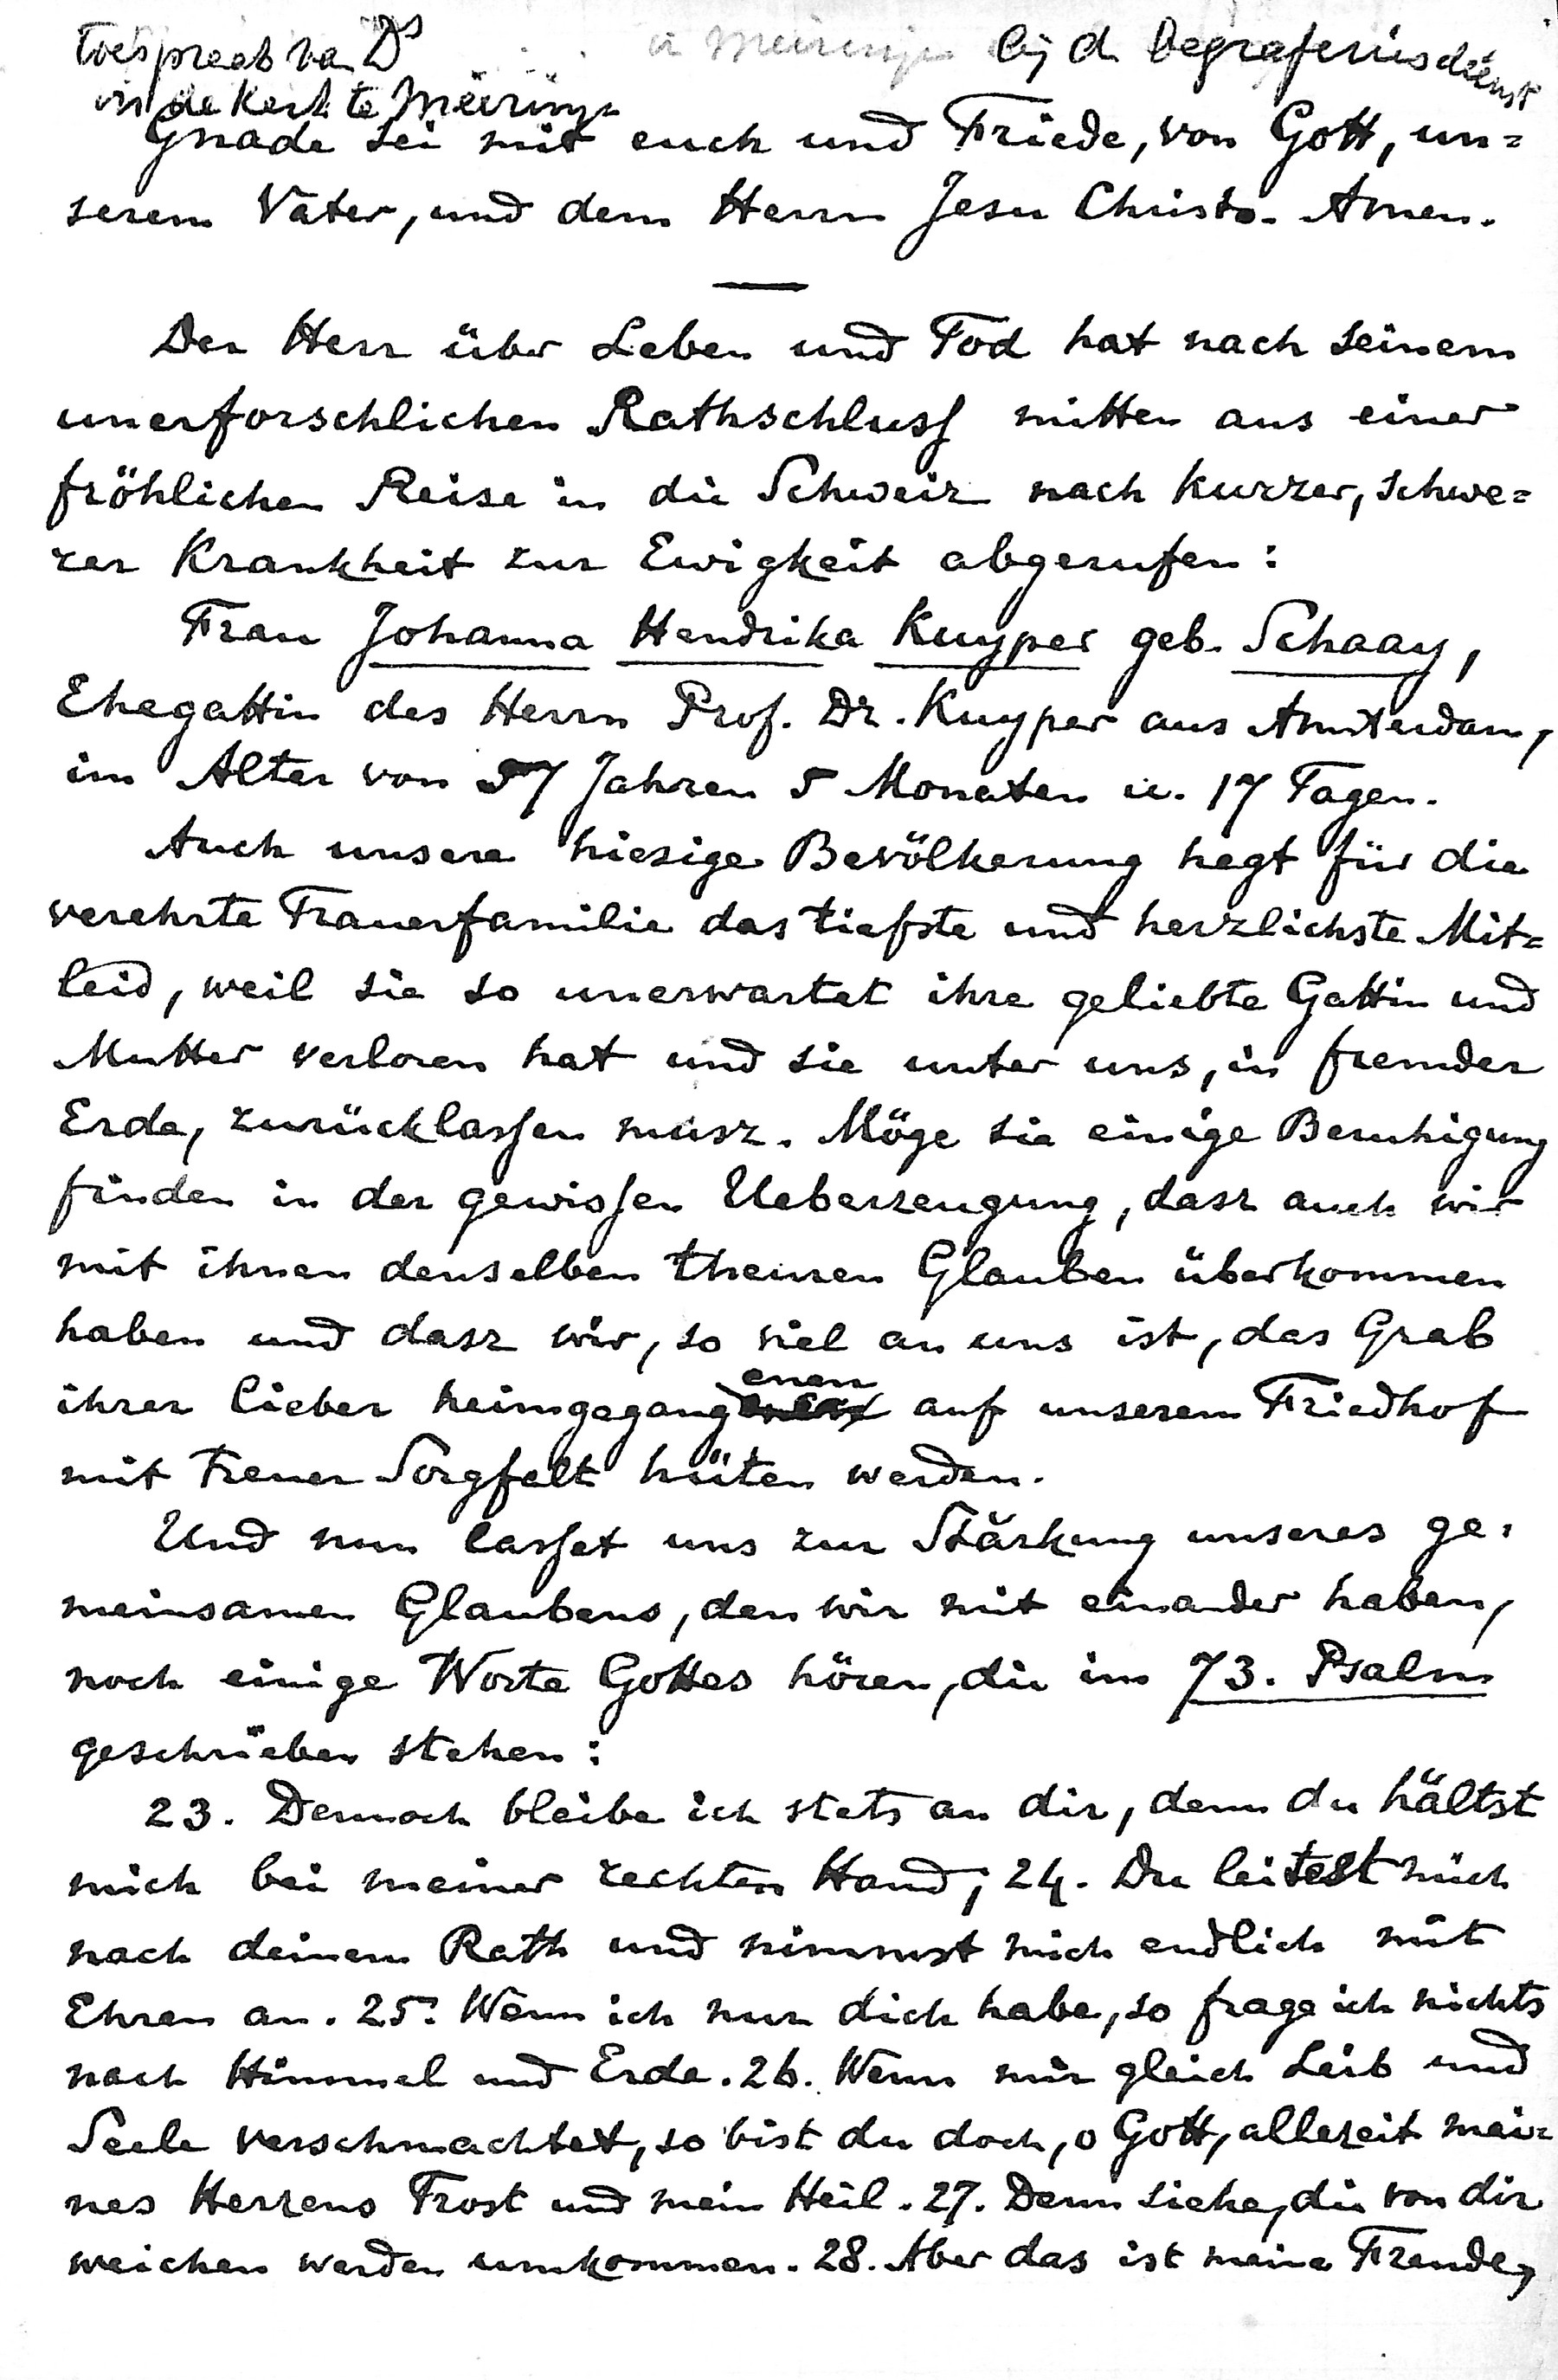 toespraak van Ds in Meiringen bij d. begrafenisdienst
in de Kerk te Meiringen
Gnade sei mit euch und Friede, von Gott, un=
serem Vater, und dem Herrn Jesu Christo. Amen.
Der Herr über Leben und Tod hat nach seinem
unerforschlichen Rathschluss mitten aus einer
fröhlichen Reise in die Schweiz nach kurzer, schwe=
rer Krankheit zur Ewigkeit abgerufen:
Frau Johanna Hendrika Kuyper geb. Schaay,
Ehegattin des Herrn Prof. Dr. Kuyper aus Amsterdam,
im Alter von 57 Jahren 5 Monaten u. 17 Tagen.
Auch unsere hiesige Bevölkerung hegt für die
verehrte Trauerfamilie das tiefste und herzlichste Mit=
leid, weil sie so unerwartet ihre geliebte Gattin und
Mutter verloren hat und sie unter uns, in fremder
Erde, zurücklassen musz. Möge sie einige Beruhigung
finden in der gewissen Ueberzeugung, dasz auch wir
mit ihnen denselben theuren Glauben überkommen
haben und dasz wir, so viel an uns ist, das Grab
ihrer lieber heimgegangenen auf unserem Friedhof
mit treuer Sorgfalt hüten werden.
Und nun lasset uns zur Stärkung unseres ge=
meinsamen Glaubens, den wir mit einander haben,
noch einige Worte Gottes hören, die im 73. Psalm
geschrieben stehen:
23. Dennoch bleibe ich stets an dir, denn du hältst
mich bei meiner rechten Hand; 24. Du leitest mich
nach deinem Rath und nimmst mich endlich mit
Ehren an. 25. Wenn ich nur dich habe, so frage ich nichts
nach Himmel und Erde. 26. Wenn mir gleich Leib und
Seele verschmachtet, so bist du doch, o Gott, allezeit mei=
nes Herzens Trost und mein Heil. 27. Denn siehe, die von dir
weichen werden umkommen. 28. Aber das ist meine Freude,